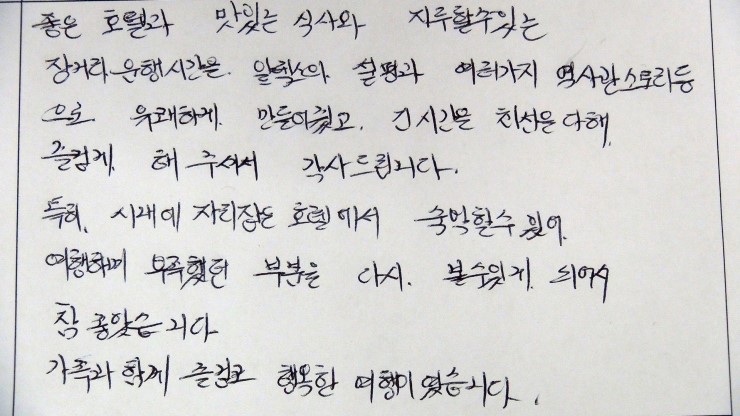 좋은 호텔과 맛있는 식사와 지루할수있는
장거리 운행시간은 알렉스의 설명과 여러가지 역사관 스토리등
으로 유쾌하게 만들어줬고, 긴 시간을 최선을 다해
즐겁게 해 주셔서 감사드립니다.
특히, 시내에 자리잡은 호텔에서 숙박할수 있어
여행하며 부족했던 부분을 다시 볼수있게 되어서
참 좋았습니다
가족과 함께 즐겁고 행복한 여행이였습니다.